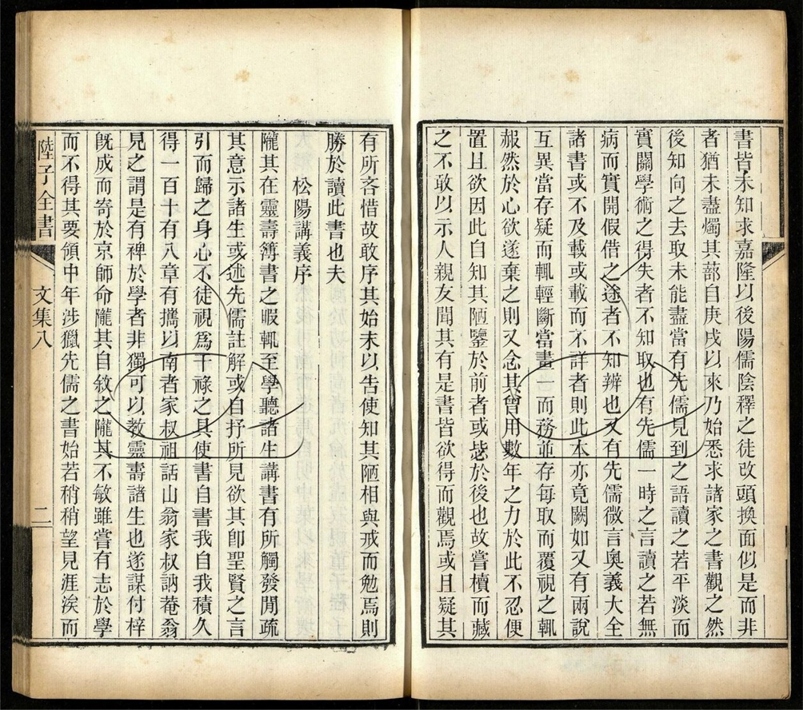 書皆未知求嘉隆以後陽儒陰釋之徒改頭換面似是而非
者猶未盡燭其蔀自庚戌以來乃始悉求諸家之書觀之然
後知向之去取未能盡當有先儒見到之語讀之若平淡而
實關學術之得失者不知取也有先儒一時之言讀之若無
病而實開假借之途者不知辨也又有先儒微言奧義大全
諸書或不及載或載而不詳者則此本亦竟闕如又有兩說
互異當存疑而輒輕斷當畫一而務並存每取而覆視之輒
赧然於心欲遂棄之則又念其曾用數年之力於此不忍便
置且欲因此自知其陋鑒於前者或毖於後也故嘗櫝而藏
之不敢以示人親友聞其有是書皆欲得而觀焉或且疑其
有所吝惜故敢序其始末以告使知其陋相與戒而勉焉則
勝於讀此書也夫
松陽講義序
隴其在靈壽簿書之暇輒至學聽諸生講書有所觸發閒疏
其意示諸生或述先儒註解或自抒所見欲其卽聖賢之言
引而歸之身心不徒視爲干祿之具使書自書我自我積久
得一百十有八章有攜以南者家叔祖話山翁家叔訥菴翁
見之謂是有裨於學者非獨可以敎靈壽諸生也遂謀付梓
旣成而寄於京師命隴其自敘之隴其不敏雖嘗有志於學
而不得其要領中年涉獵先儒之書始若稍稍望見涯涘而
陸子全書
文集八
二